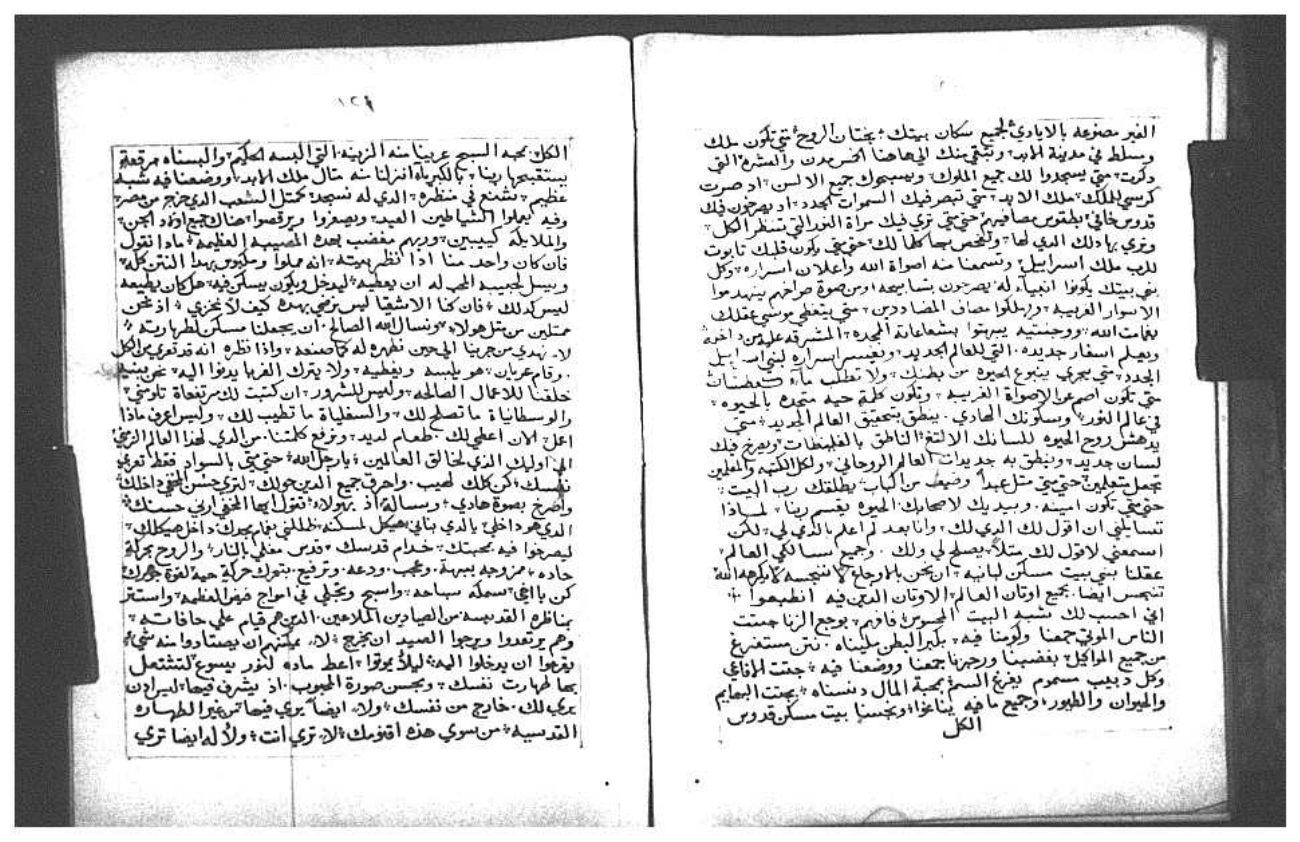 الغير مصنوعه بالايادي لجميع سكان بيتك بختان الروح متي تكون ملك
وسلط في مدينة الابد وتبقي منك الي هاهنا الخمس مدن والعشره التي
ذكرت متي يسجدوا لك جميع الملوك ويسبحوك جميع الالسن اذ صرت
كرسي للملك ملك الابد حتي تبصر فيك السموات الجدد اذ يصرخون فيك
قدوس حتي متي تري فيك مراة النور التي تنظر الكل
وتري بها ذلك الذي لها وتفحص بها كلما لك حتي متي يكون قلبك تابوت
للرب ملك اسراييل وتسمعنا منه اصواة الله واعلان اسراره وكل
بني بيتك يكونوا انبياء له يصرخون بتسابيحه ومن صوة صراخهم ينهدموا
الاسوار الغريبه ويهلكوا مصاف المضاددين متي يتغطي موسي عقلك
بغمامت الله ووجنتيه يبهتوا بشعاعات المجده المشرقه عليه من داخره
ويعلم اسفار جديده التي للعالم الجديد ويفسر اسراره لبني اسراييل
الجدد متي يجري ينبوع الحيوه من بطنك ولا تطلب ماء
متي تكون اصم عن الاصواة الغريبه وتكون كلمة حيه متحده بالحيوه
في عالم النور وسكونك الهادي ينطق بتحقيق العالم الجديد متي
يدهش روح الحيوه للسانك الالتغ الناطق بالغليظات ويصرخ فيك
لسان جديد وينطق به جديدات العالم الروحاني ولكل الكتبه والمعلمين
تجعل متعلمين حتي متي مثل عبدا وضيف من الباب يطلقك رب البيت
حتي متي تكون امينه وبيديك لاصحابك الحيوه يقسم ربنا لماذا
تسايلني ان اقول لك الذي لك وانا بعد لم اعلم بالذي لي لكن
اسمعني لاقول لك مثلا يصلح لي ولك وجميع سالكي العالم
عقلنا بني بيت مسكن لبانيه ان نحن بالاوجاع لا ننجسه لا يكرهه الله
تنجس ايضا بجميع اوتان العالم الاوتان الذين فيه انطبعوا
اني احسب لك تشبه البيت المحسوس فافهم بوجع الزنا جتت
الناس الموتي جمعنا وكومنا فيه بكبر البطن مليناه نتن مستفرغ
من جميع المواكل بغضبنا ورجزنا جمعنا ووضعنا فيه جتت الافاعي
وكل دبيب مسموم يفرغ السم بمحبة المال دنسناه بجتت البهايم
والحيوان والطيور وجميع ما فيه ونجسنا بيت مسكن قدوس
الكل
١٢٤
الكل بمجد السبح عرينا منه الزينه التي البسه الحكيم والبسناه مرقعة
يستقبحها رينا بالكبرياء انزلنا منه متال ملك الابد ووضعنا فيه شبه
عظيم يشنع في منظره الذي له نسجد كمتل الشعب الذي خرج من مصر
وفيه يعملوا الشياطين العيد ويصفروا ويرقصوا هناك جميع الجن
والملايكه كييبين وربهم مغضب بهذه المصيبه العظيمه ماذا نقول
فان كان واحد منا اذا نظر بيته انه مملوا بهذا النتن كله
ويسل لحبيبه المحب له ان يعطيه ليدخل ويكون يسكن فيه هل كان يطيعه
ليس كذلك فان كنا الاشقيا ليس نرضي بهذه كيف لا نخزي اذ نحن
ممتلين من متل هولاء ونسال الله الصالح ان يجعلنا مسكن لطهاريته
لا نهدي من جرينا الي حين نطهره له كما صنعه واذا نظره انه قد تعري من الكل
وقام عريان هو يلبسه ويغطيه ولا يترك الغربا يدنوا اليه نحن بنيه
خلقنا للاعمال الصالحه وليس للشرور ان كتبت لك
والوسطانياة ما تصلح لك والسفلياة ما تطيب لك وليس اعرف ماذا
اعمل الان اعطي لك طعام لذيذ وترفع كلمتنا من الذي لهذا العالم
الي اوليك الذي لخالق العالمين يا رجل الله حتي متي بالسواد فقط تعري
نفسك كن كلك لهيب واحرق جميع الذين حولك لتري حسن المخفي داخلك
واصرخ بصوة هادي ورساله اذ بهولاء تقول ايها المخفي اريني حسنك
الذي هو داخلي يا الذي بناني هيكل لمسكنه ظللني بغمام مجدك داخل هيكلك
ليصرخوا فيه بمحبتك خدام قدسك قدس مغلي بالنار والروح بحركة
حاده ممزوجه ببهته وعجب ودعه وترفيع بتحرك حركة حيه لقوة جوهرك
كن يا اخي سمكه سباحه واسبح وتجلي في امواج فيض العظمه واستتر
بمناظره القديسه من الصيادين الملاعين الذين هم قيام علي حافاته
وهم يرتعدوا ويرجوا الصيد ان يخرج لا يمكنهم ان يصتادوا منه شي
يفزعوا ان يدخلوا اليه ليلا يموتوا اعط ماده لنور يسوع لتشتعل
بها طهارت نفسك وبحسن صورة المحبوب اذ يشرق فيها ليراد ان
يري لك خارج من نفسك ولا ايضا يري فيها من غير الطهاره
القدسيه من سوي هذه اقنومك لا تري انت ولا له ايضا تري